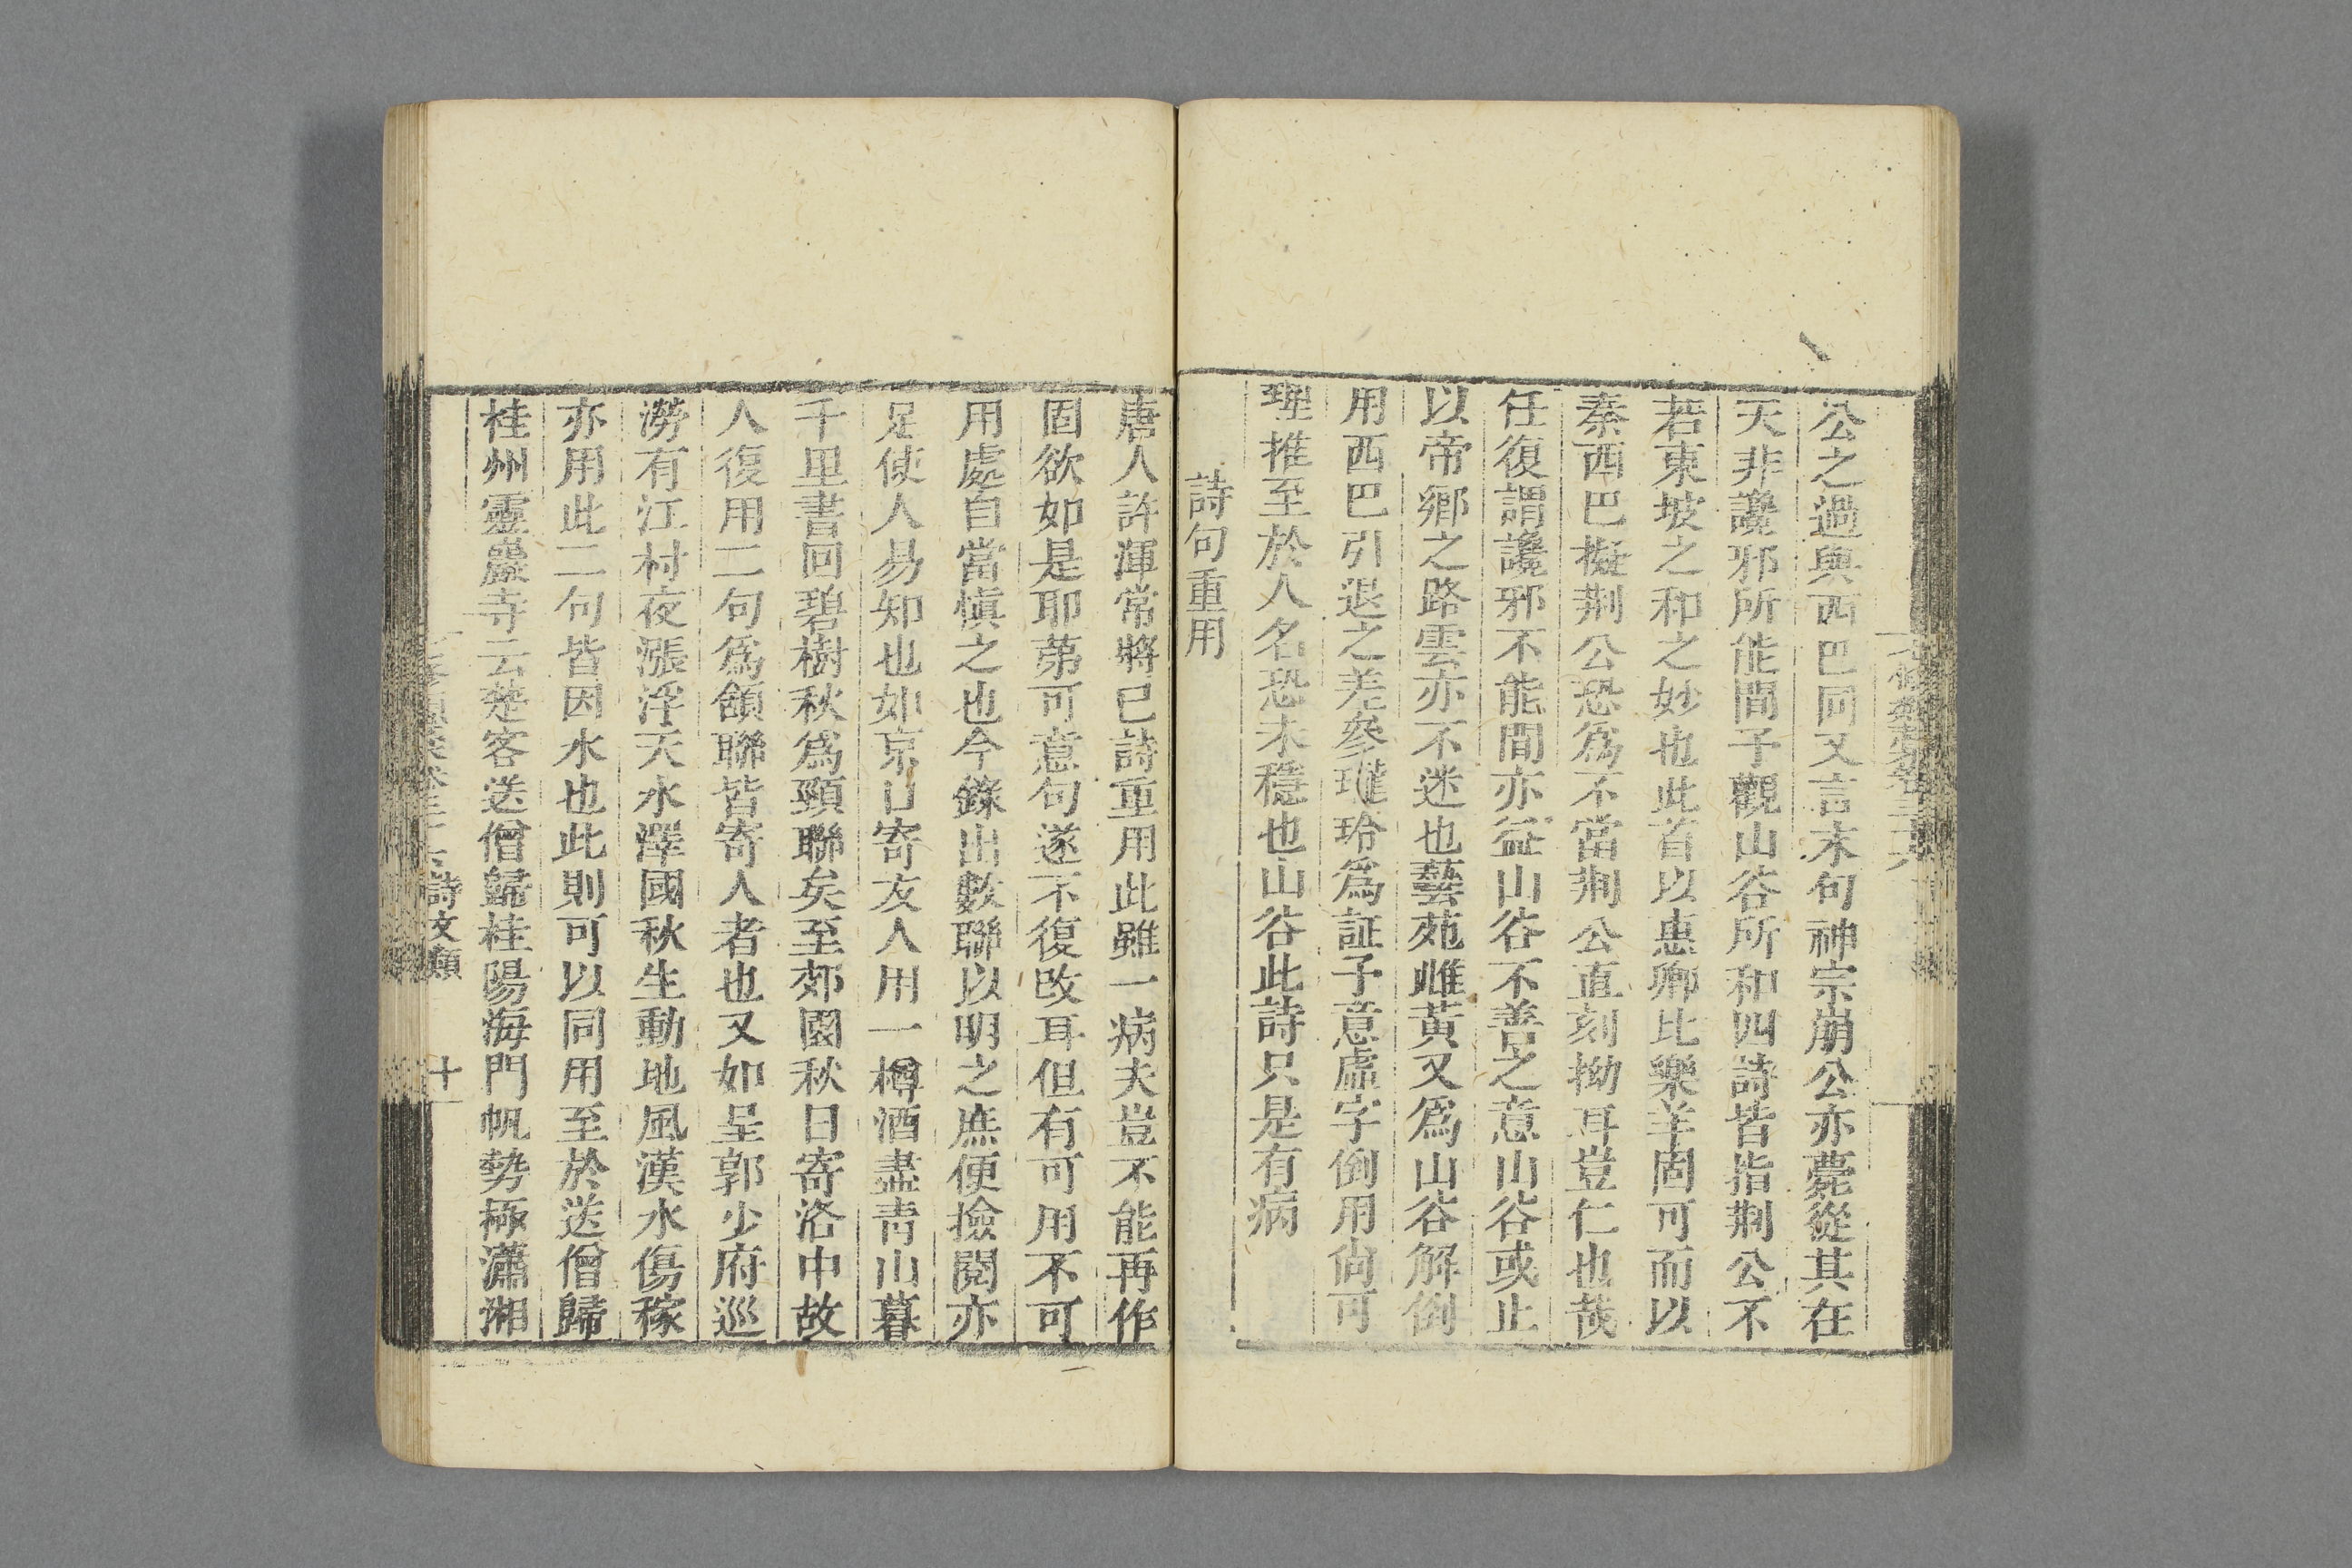 公之過與西巴同又言末句神宗崩公亦薨從其在
天非讒邪所能間予觀山谷所和四詩皆指荆公不
若東坡之和之妙也此首以惠卿比樂羊固可而以
秦西巴擬荆公恐爲不當荆公直刻拗耳豈仁也哉
任復謂讒邪不能間亦益山谷不善之意山谷或止
以帝鄉之路雲亦不迷也藝苑雌黃又爲山谷解倒
用西巴引退之差參瓏玲爲証予意虛字倒用尙可
理推至於人名恐未穩也山谷此詩只是有病
詩句重用
唐人許渾常將已詩重用此雖一病夫豈不能再作
固欲如是耶苐可意句遂不復改耳但有可用不可
用處自當慎之也今錄出數聯以明之庶便撿閱亦
足使人易知也如京口寄友人用一樽酒盡靑山暮
千里書回碧樹秋爲頸聯矣至郊園秋日寄洛中故
人復用二句爲頷聯皆寄人者也又如呈郭少府巡
澇有江村夜漲浮天水澤國秋生動地風漢水傷稼
亦用此二句皆因水也此則可以同用至於送僧歸
桂州靈巖寺云楚客送僧歸桂陽海門帆勢極瀟湘
詩文類
十一